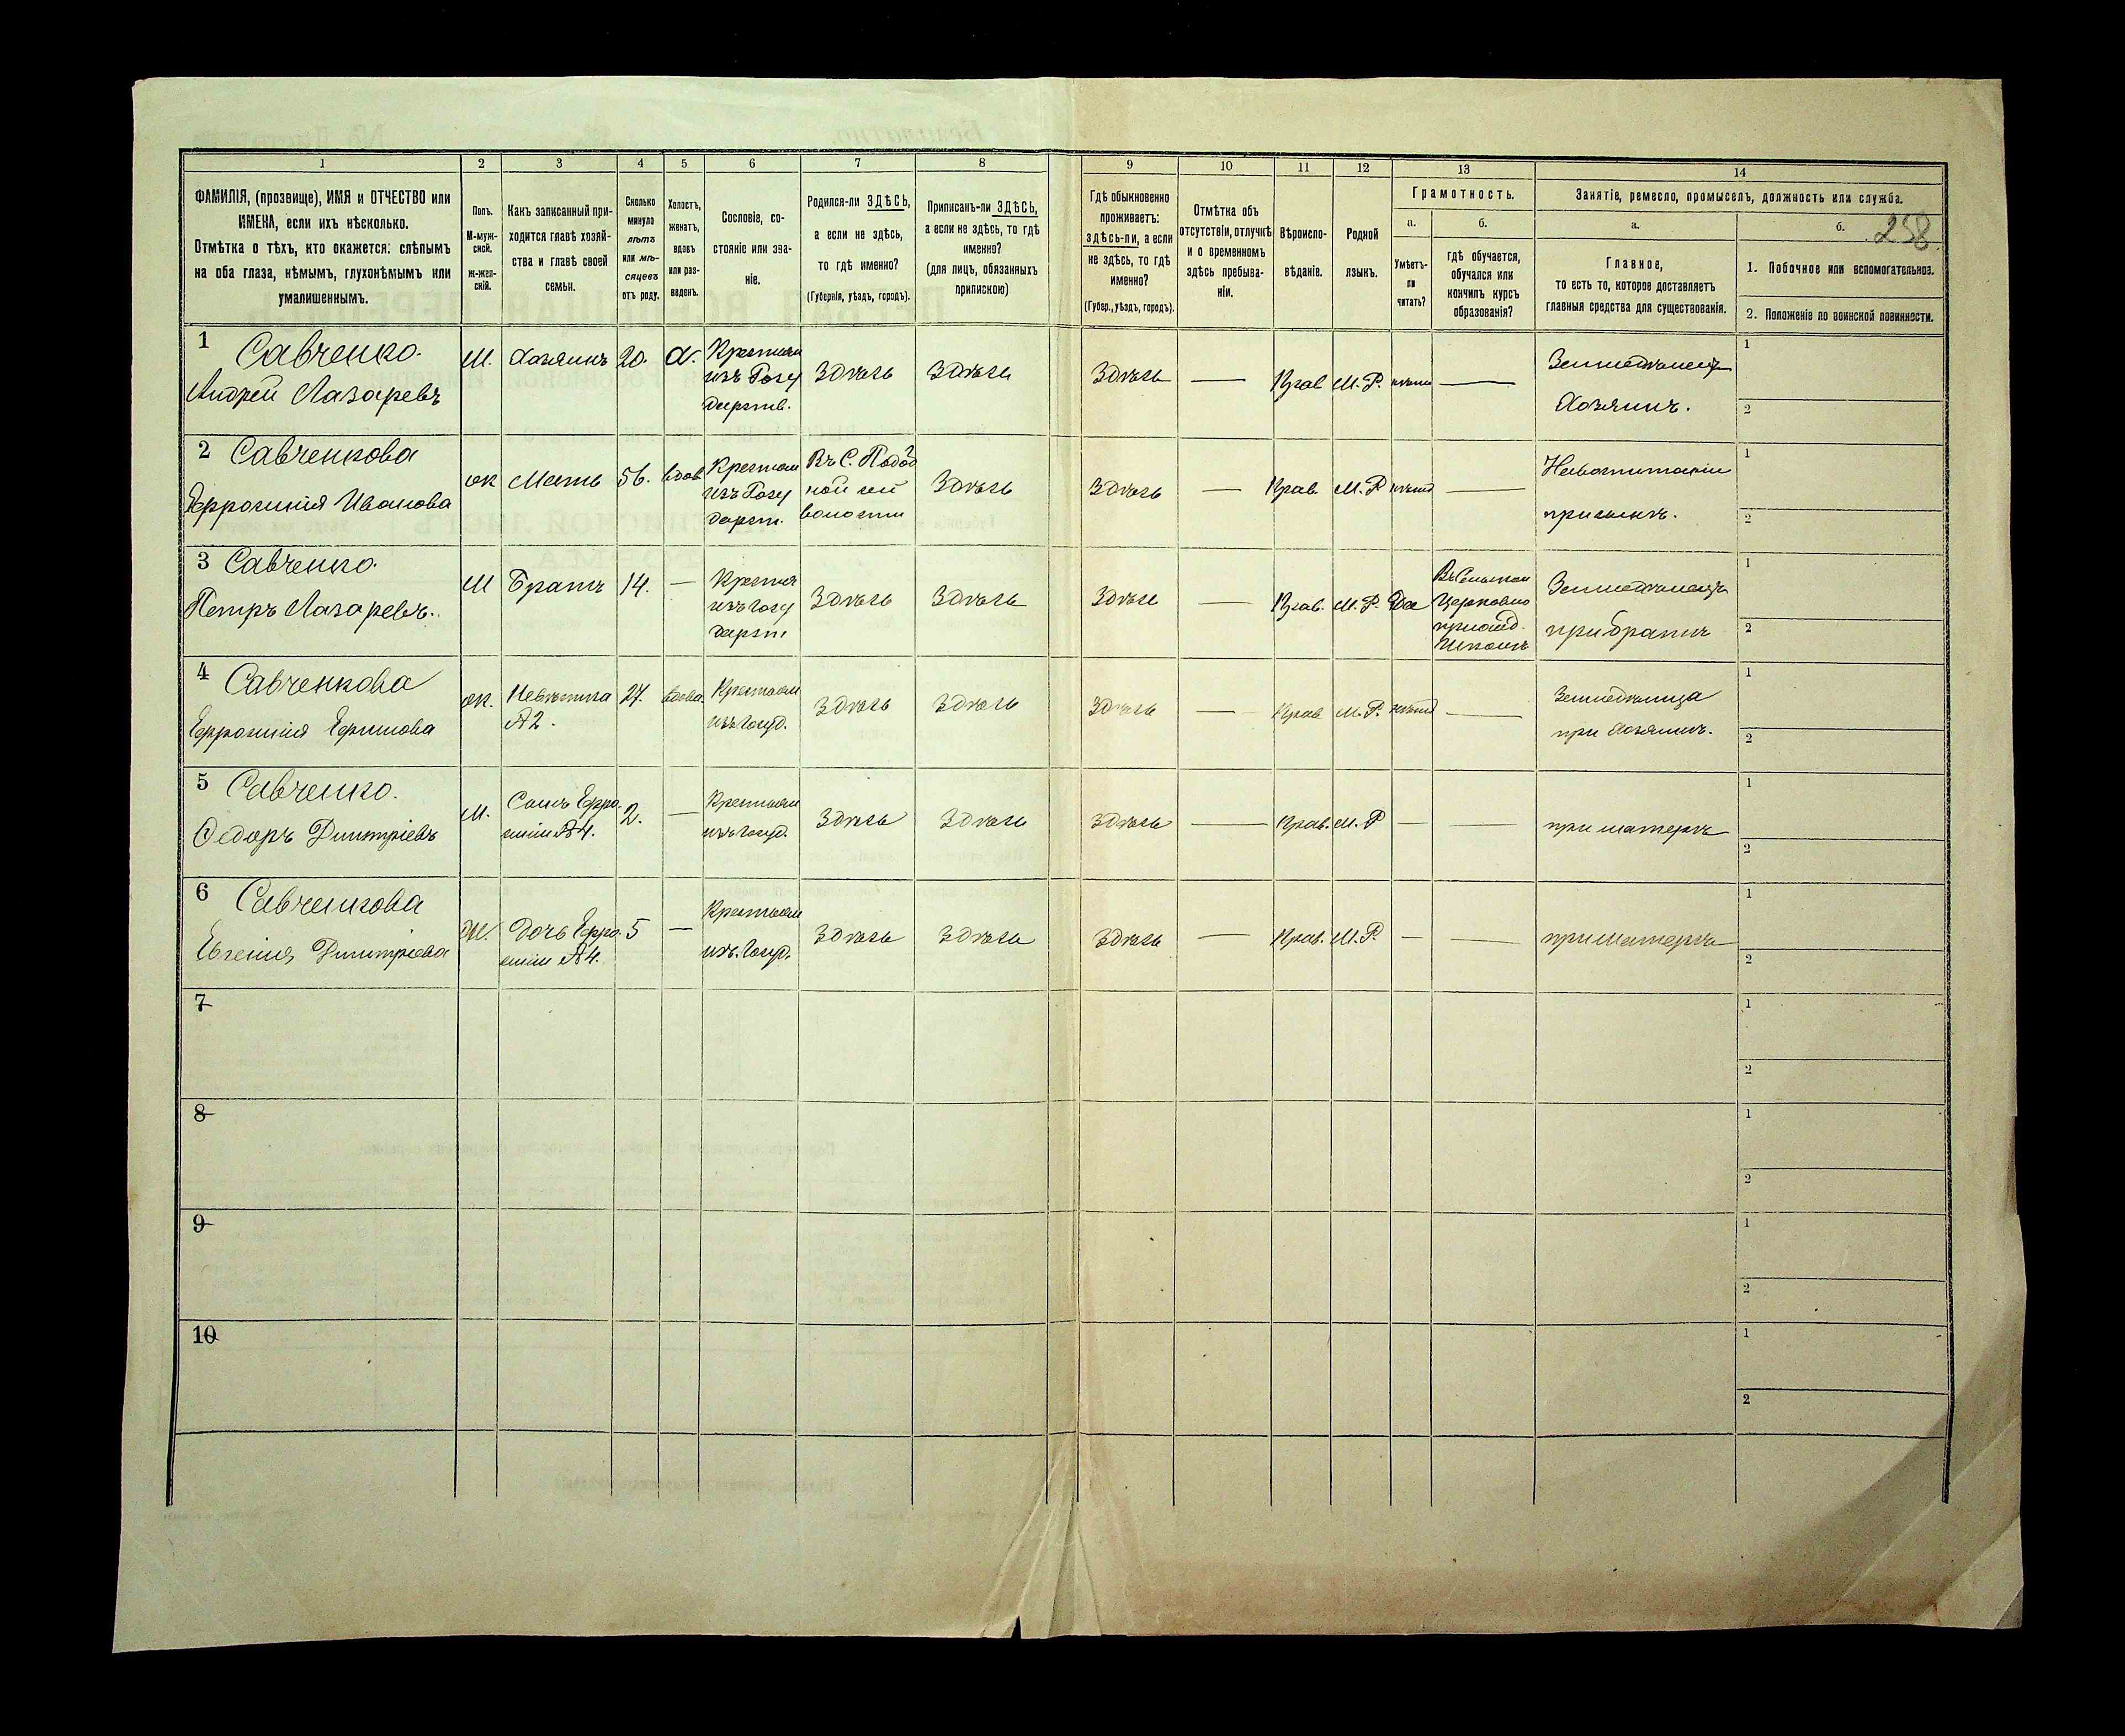 1 2 3 4 5 6 7 8 9 10 11 12 13 14
ФАМИЛІЯ, (прозвище), ИМЯ и ОТЧЕСТВО или
ИМЕНА, если ихъ нѣсколько.
Отмѣтка о тѣхъ, кто окажется: слѣпымъ
на оба глаза, нѣмымъ, глухонѣмымъ или
умалишеннымъ.
Полъ.
М-муж-
ской.
ж-жен-
скій.
Какъ записанный при-
ходится главѣ хозяй-
ства и главѣ своей
семьи.
Сколько
минуло
лѣтъ
или мѣ-
сяцевъ
отъ роду.
Холостъ,
женатъ,
вдовъ
или раз-
веденъ.
Сословіе, со-
стояніе или зва-
ніе.
Родился-ли ЗДѢСЬ,
а если не здѣсь,
то гдѣ именно?
(Губернія, уѣздъ, городъ).
Приписанъ-ли ЗДѢСЬ,
а если не здѣсь, то гдѣ
именно?
(для лицъ, обязанныхъ
припискою)
Гдѣ обыкновенно
проживаетъ:
здѣсь-ли, а если
не здѣсь, то гдѣ
именно?
(Губер., уѣздъ, городъ).
Отмѣтка объ
отсутствіи, отлучкѣ
и о временномъ
здѣсь пребыва-
ніи.
Вѣроиспо-
вѣданіе.
Родной
языкъ.
Грамотность.
а.
Умѣетъ-
ли
читать?
б.
гдѣ обучается,
обучался или
кончилъ курсъ
образованія?
Занятіе, ремесло, промыселъ, должность или служба.
а.
Главное,
то есть то, которое доставляетъ
главныя средства для существованія.
б.
258
1. Побочное или вспомогательное.
2. Положеніе по воинской повинности.
1
Савченко.
Андрей Лазаревъ
М.
Хозяинъ
20.
Х.
Крестьян
изъ Госу
дарств.
Здѣсь
Здѣсь
Здѣсь
—
Прав
М.Р.
нѣтъ
—
Земледѣлецъ
Хозяинъ.
1
2
2
Савченкова
Ефросинія Иванова
ж
Мать
56.
вдов
Крестьян
изъ Госу
дарст.
Въ С.
ной сей
волости
Здѣсь
Здѣсь
—
Прав.
М.Р
нѣтъ
—
На
при сынѣ.
1
2
3
Савченко.
Петръ Лазаревъ.
М
Братъ
14.
—
Крестья
изъ госу
дарст
Здѣсь
Здѣсь
Здѣсь
—
Прав.
М.Р.
Да
Въ Сельской
Церковно
приход.
Школѣ
Земледѣлецъ
при братѣ
1
2
4
Савченкова
Ефросинія Ефимова
ж.
Невѣстка
№2.
27.
вдова.
Крестьян
изъ госуд.
Здѣсь
Здѣсь
Здѣсь
—
Прав
М.Р.
нѣтъ
—
при Хозяинѣ.
1
2
5
Савченко.
Федоръ Димитріевъ
М.
Сынъ Ефро
синіи №4.
2.
—
Крестьян
изъ госуд.
Здѣсь
Здѣсь
Здѣсь
—
Прав.
М.Р
—
—
при матери
1
2
6
Савченкова
Евгенія Димитріева
Ж.
Дочь Ефро
синіи №4.
5
—
Крестьян
изъ. госуд.
Здѣсь
Здѣсь
Здѣсь
—
Прав.
М.Р.
—
—
при матери
1
2
7
1
2
8
1
2
9
1
2
10
1
2